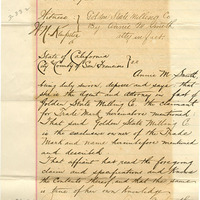 Witness Golden State Milling Co
By Annie M. Smith
Atty in fact
State of California
City County of San Francisco ss
Annie M. Smith
being duly sworn, deposes and says that
she is the agent and attorney in fact of
Golden State Milling Co. the claimant
for Trade Mark hereinabove mentioned
That said Golden State Milling Co
is the exclusive owner of the Trade
Mark and name hereinbefore mentioned
and described
That affiant has read the foregoing
claim and specifications and knows
the contents thereof and that the same
is true of her own knowledge